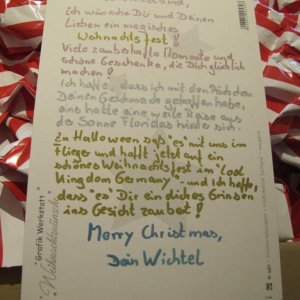 ich wünsche Dir und Deinen
Lieben ein magisches
Weihnachtsfest!
Viele zauberhafte Momente und
schöne Geschenke, die Dich glücklich
machen!
Ich hoffe, dass ich mit den Päckchen
Deinen Geschmack getroffen habe,
uns hatte eine weite Reise aus
do Sonne Floridas hinter sich.
Zu Halloween saß "es" mit uns im
Flieger und hofft jetzt auf ein
schönes Weihnachtsfest im "Cool
Kingdom Germany" - und ich hoffe,
dass "es" Dir ein dickes Grinsen
ins Gesicht zaubert!
Merry Christmas,
Dein Wichtel
Grafik Werkstatt
Weihnachtswünsche